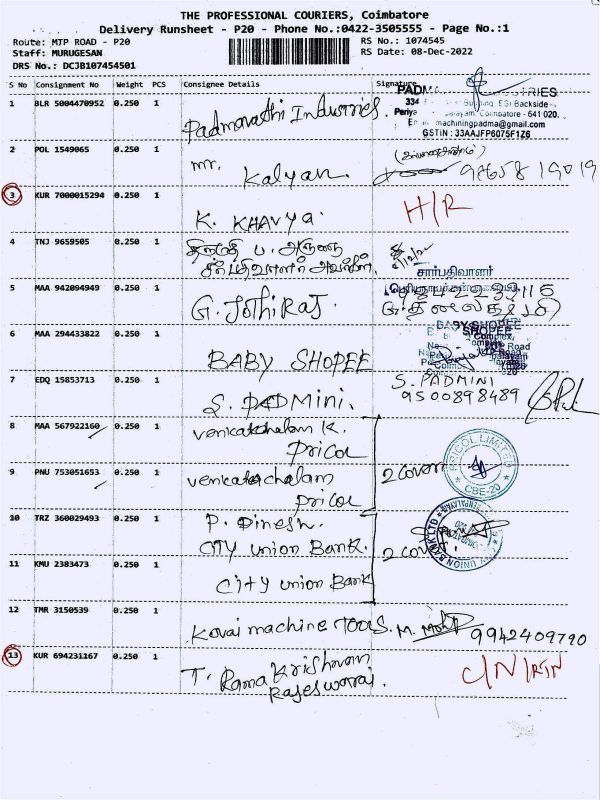 THE PROFESSIONAL COURIERS, Coimbatore
Delivery Runsheet - P20 - Phone No.:0422-3505555 - Page No.:1
Route: MTP ROAD - P20
RS No.: 1074545
Staff: MURUGESAN
RS Date: 08-Dec-2022
DRS No.: DCJB107454501
S No Consignment No Weight PCS Consignee Details Signature
1 BLR 5004470952 0.250 1 Padmavathi Industries.
PADMA STRIES
334 Building, ESI Backside
Periya Coimbatore - 641 020.
machiningpadma@gmail.com
GSTIN : 33AAJFP6075F1Z6
2 POL 1549065 0.250 1 mr. Kalyan.
98658 19019
3 KUR 7000015294 0.250 1 K. KHAVYA.
H/R
4 TNJ 9659505 0.250 1
சார்பதிவாளர்
5 MAA 942094949 0.250 1 G. JOthiRAJ.
6 MAA 294433822 0.250 1 BABY SHOPEE
BABY SHOPEE
7 EDQ 15853713 0.250 1 S. PADMINI.
S. PADMINI
9500898489
8 MAA 567922160 0.250 1 venkatachalam K.
Pricol
9 PNU 753051653 0.250 1 venkatachalam
pricol
2 cover
PRICOL LIMITED
* CBE-20 *
10 TRZ 360029493 0.250 1 P. Dinesh.
City union Bank.
11 KMU 2383473 0.250 1 City union Bank
2 cover.
CITY UNION BANK LTD
12 TMR 3150539 0.250 1 Kovai machine Tools.
9942409790
13 KUR 694231167 0.250 1 T. Rama Krishnan
Rajeswarai.
C/N/RTN